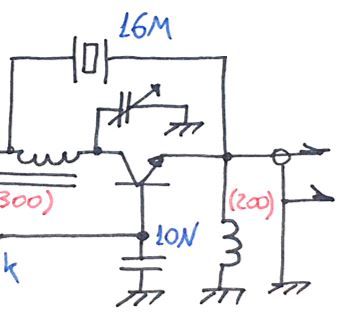 16M
300)
(200)
10N
k